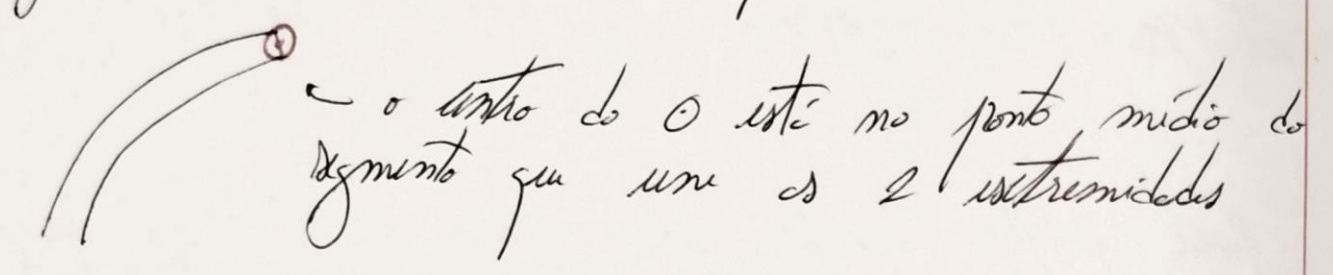 ~ o centro do ⊙ está no ponto médio do
segmento que une as 2 extremidades